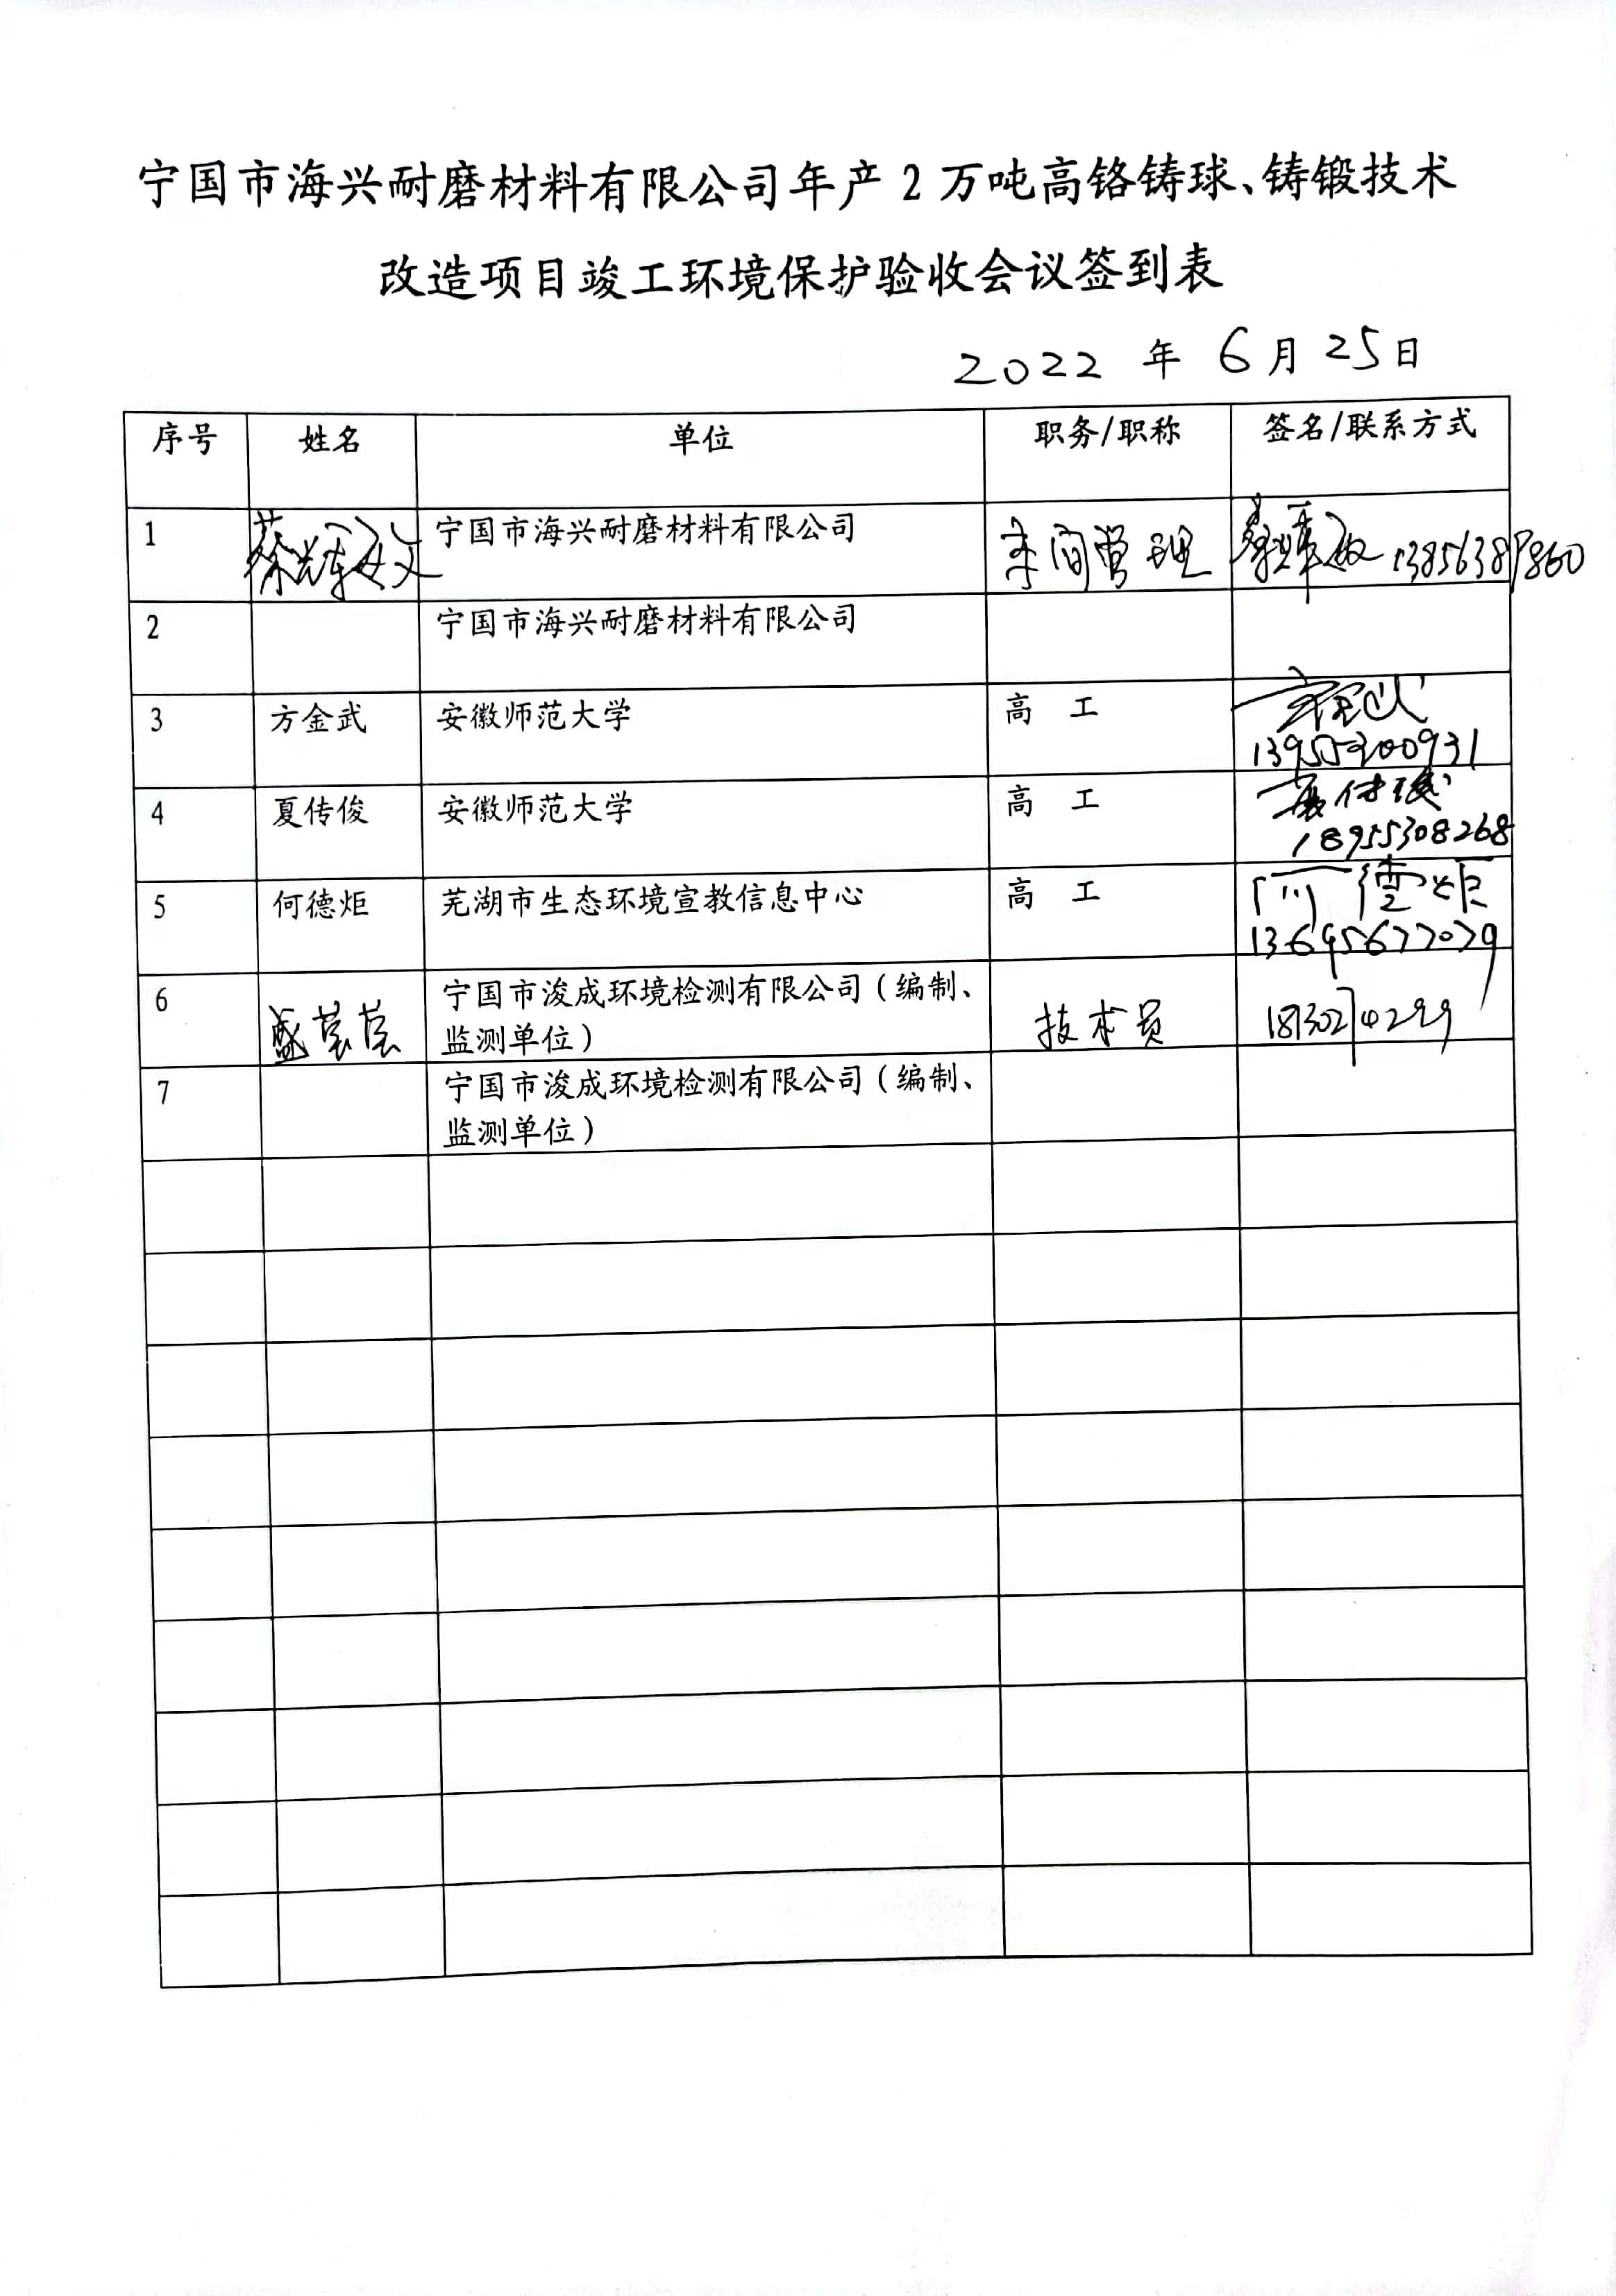 宁国市海兴耐磨材料有限公司年产2万吨高铬铸球、铸锻技术
改造项目竣工环境保护验收会议签到表
2022 年 6月 25日
序号 姓名 单位 职务/职称 签名/联系方式
1 宁国市海兴耐磨材料有限公司 车间管理
2 宁国市海兴耐磨材料有限公司
3 方金武 安徽师范大学 高 工 方金武
13955300931
4 夏传俊 安徽师范大学 高 工 夏传俊
18955308268
5 何德炬 芜湖市生态环境宣教信息中心 高 工 何德炬
13695677079
6 宁国市浚成环境检测有限公司（编制、
监测单位） 技术员 18130274299
7 宁国市浚成环境检测有限公司（编制、
监测单位）